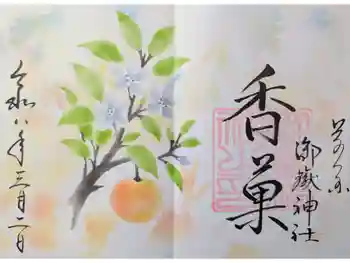 御嶽神社
香菓
令和八年三月二日